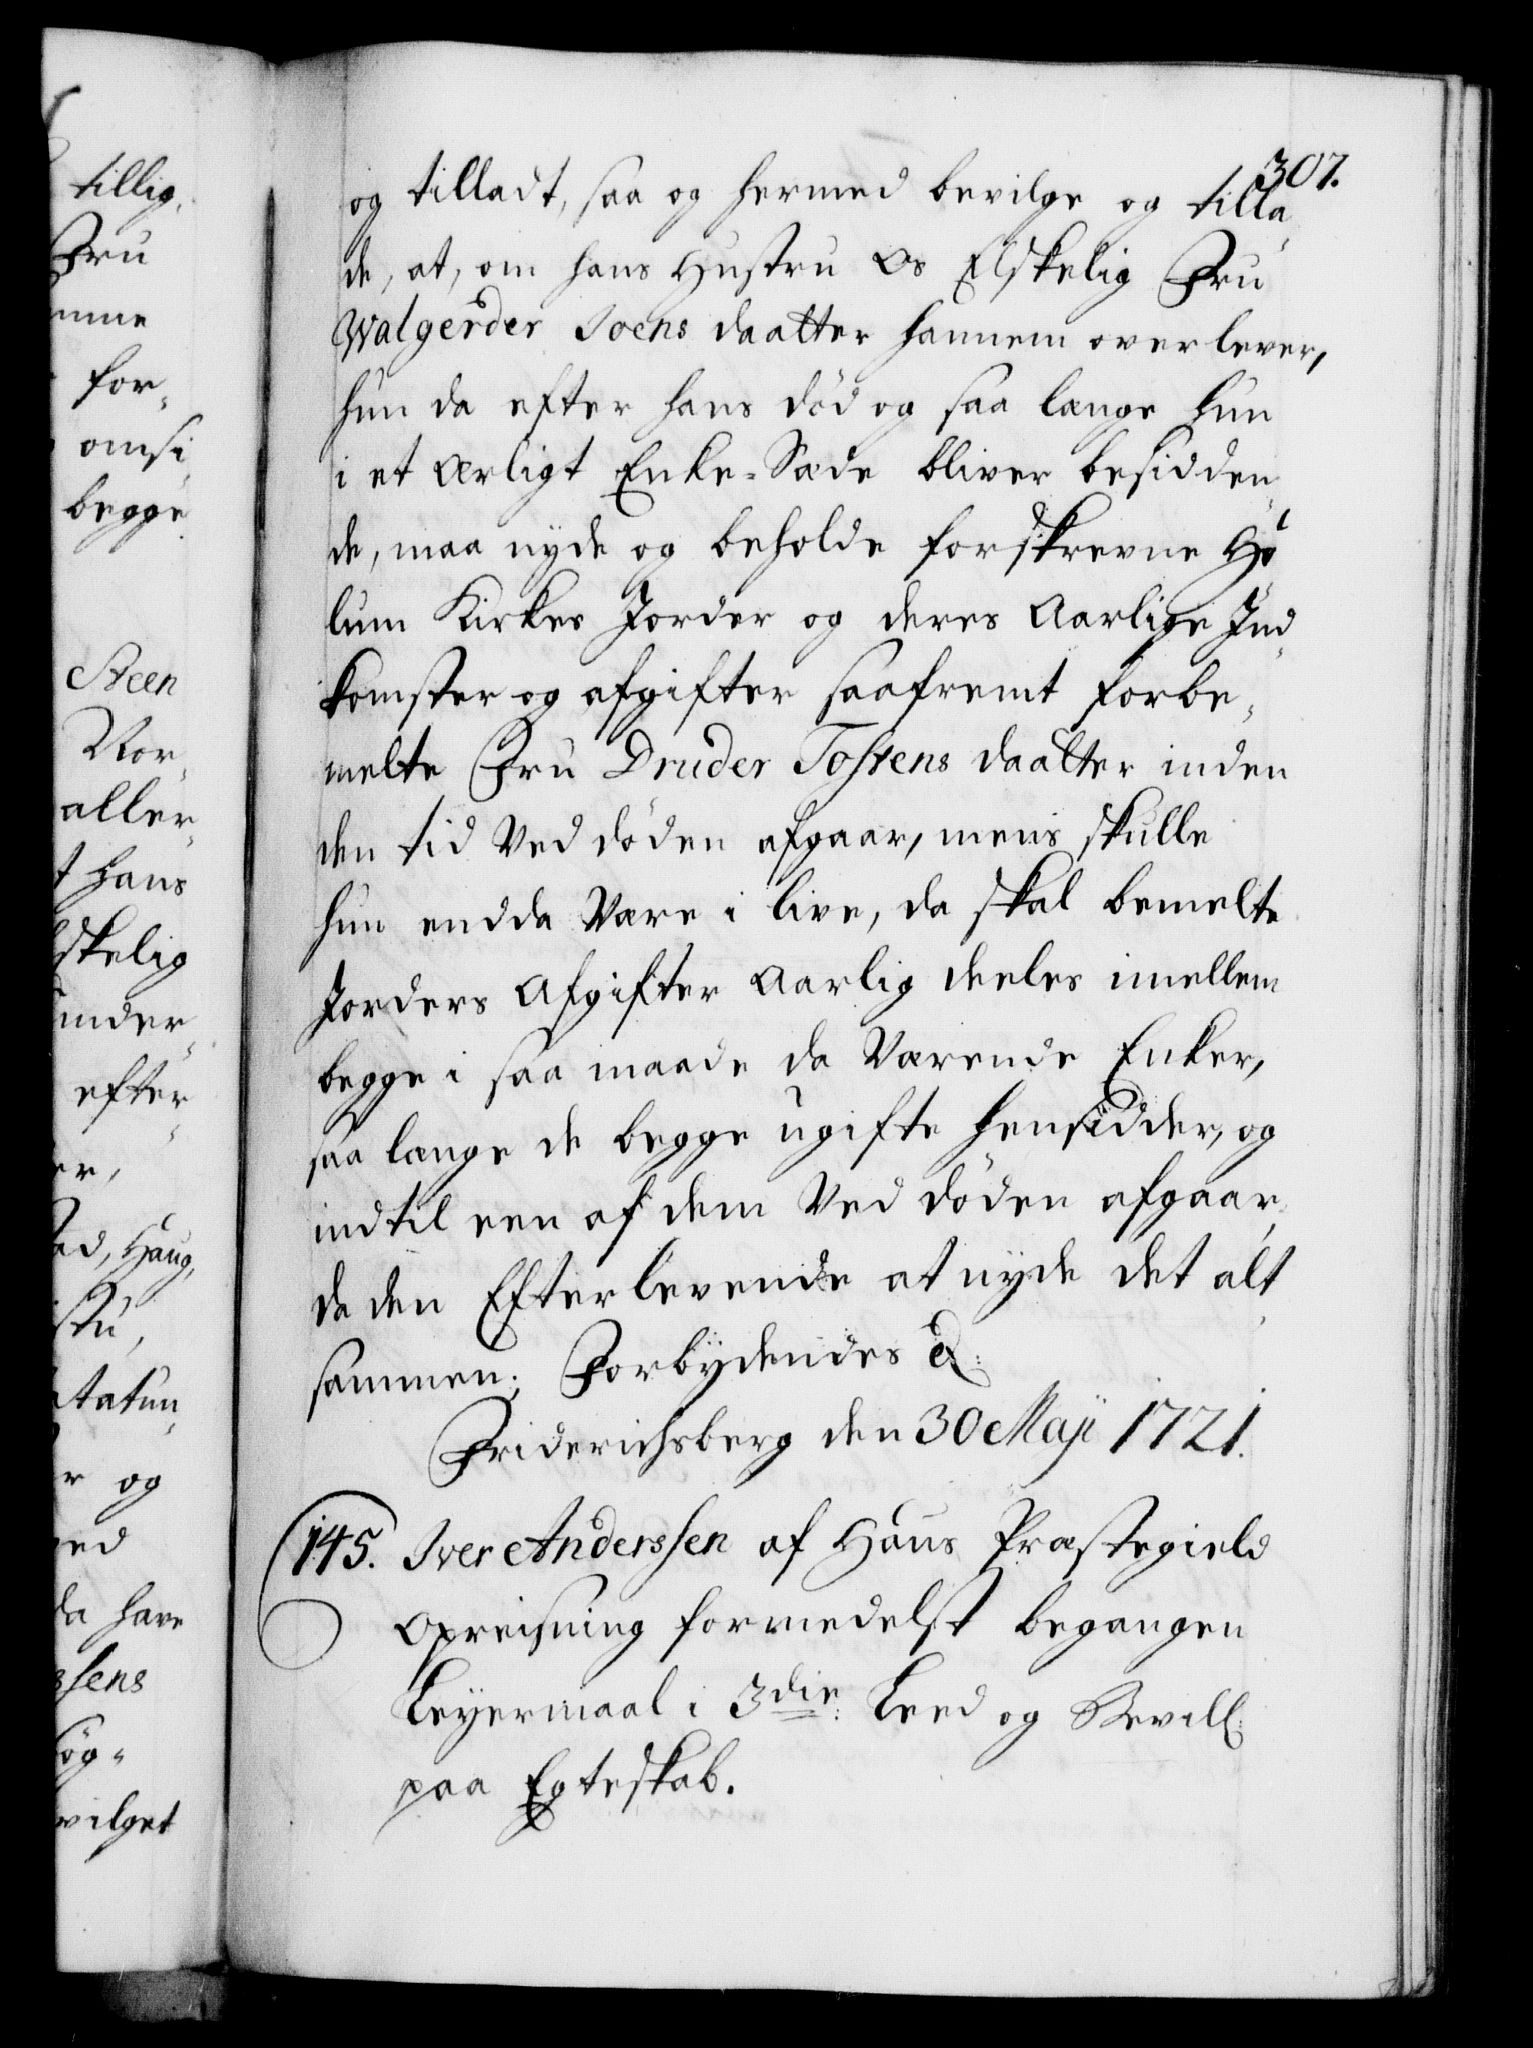 tillig,
Fru
mme
for-
omsi
begge
Steen
Nor-
aller-
t hans
lskelig
nder
efter
er,
ad, Haug,
stu,
tatun-
r og
ed
da have
ssens
øg-
vilget
307.
og tilladt, saa og hermed bevilge og tilla
de, at, om hans Hustru Os Elskelig Fru
Walgerder Joens daatter hannem overlever,
hun da efter hans død og saa længe hun
i et ærligt Enke-Sæde bliver besidden-
de, maa nyde og beholde forskrevne Ho
lum Kirkes Jorder og deres Aarlige Ind-
komster og afgifter saafremt forbe-
melte Fru Druder Tostens daatter inden
den tid ved døden afgaar, mens skulle
hun endda være i live, da skal bemelte
Jorders Afgifter Aarlig deeles imellem
begge i saa maade da værende Enker,
saa længe de begge ugifte hensidder, og
indtil een af dem ved døden afgaar,
da den Efterlevende at nyde det alt
sammen; Forbydendes &:
Friderichsberg den 30 Maji 1721.
145. Iver Anderssen af Haus Præstegield
Opreisning formedelst begangen
Leyermaal i 3die: Leed og Bevill:
paa Egteskab.